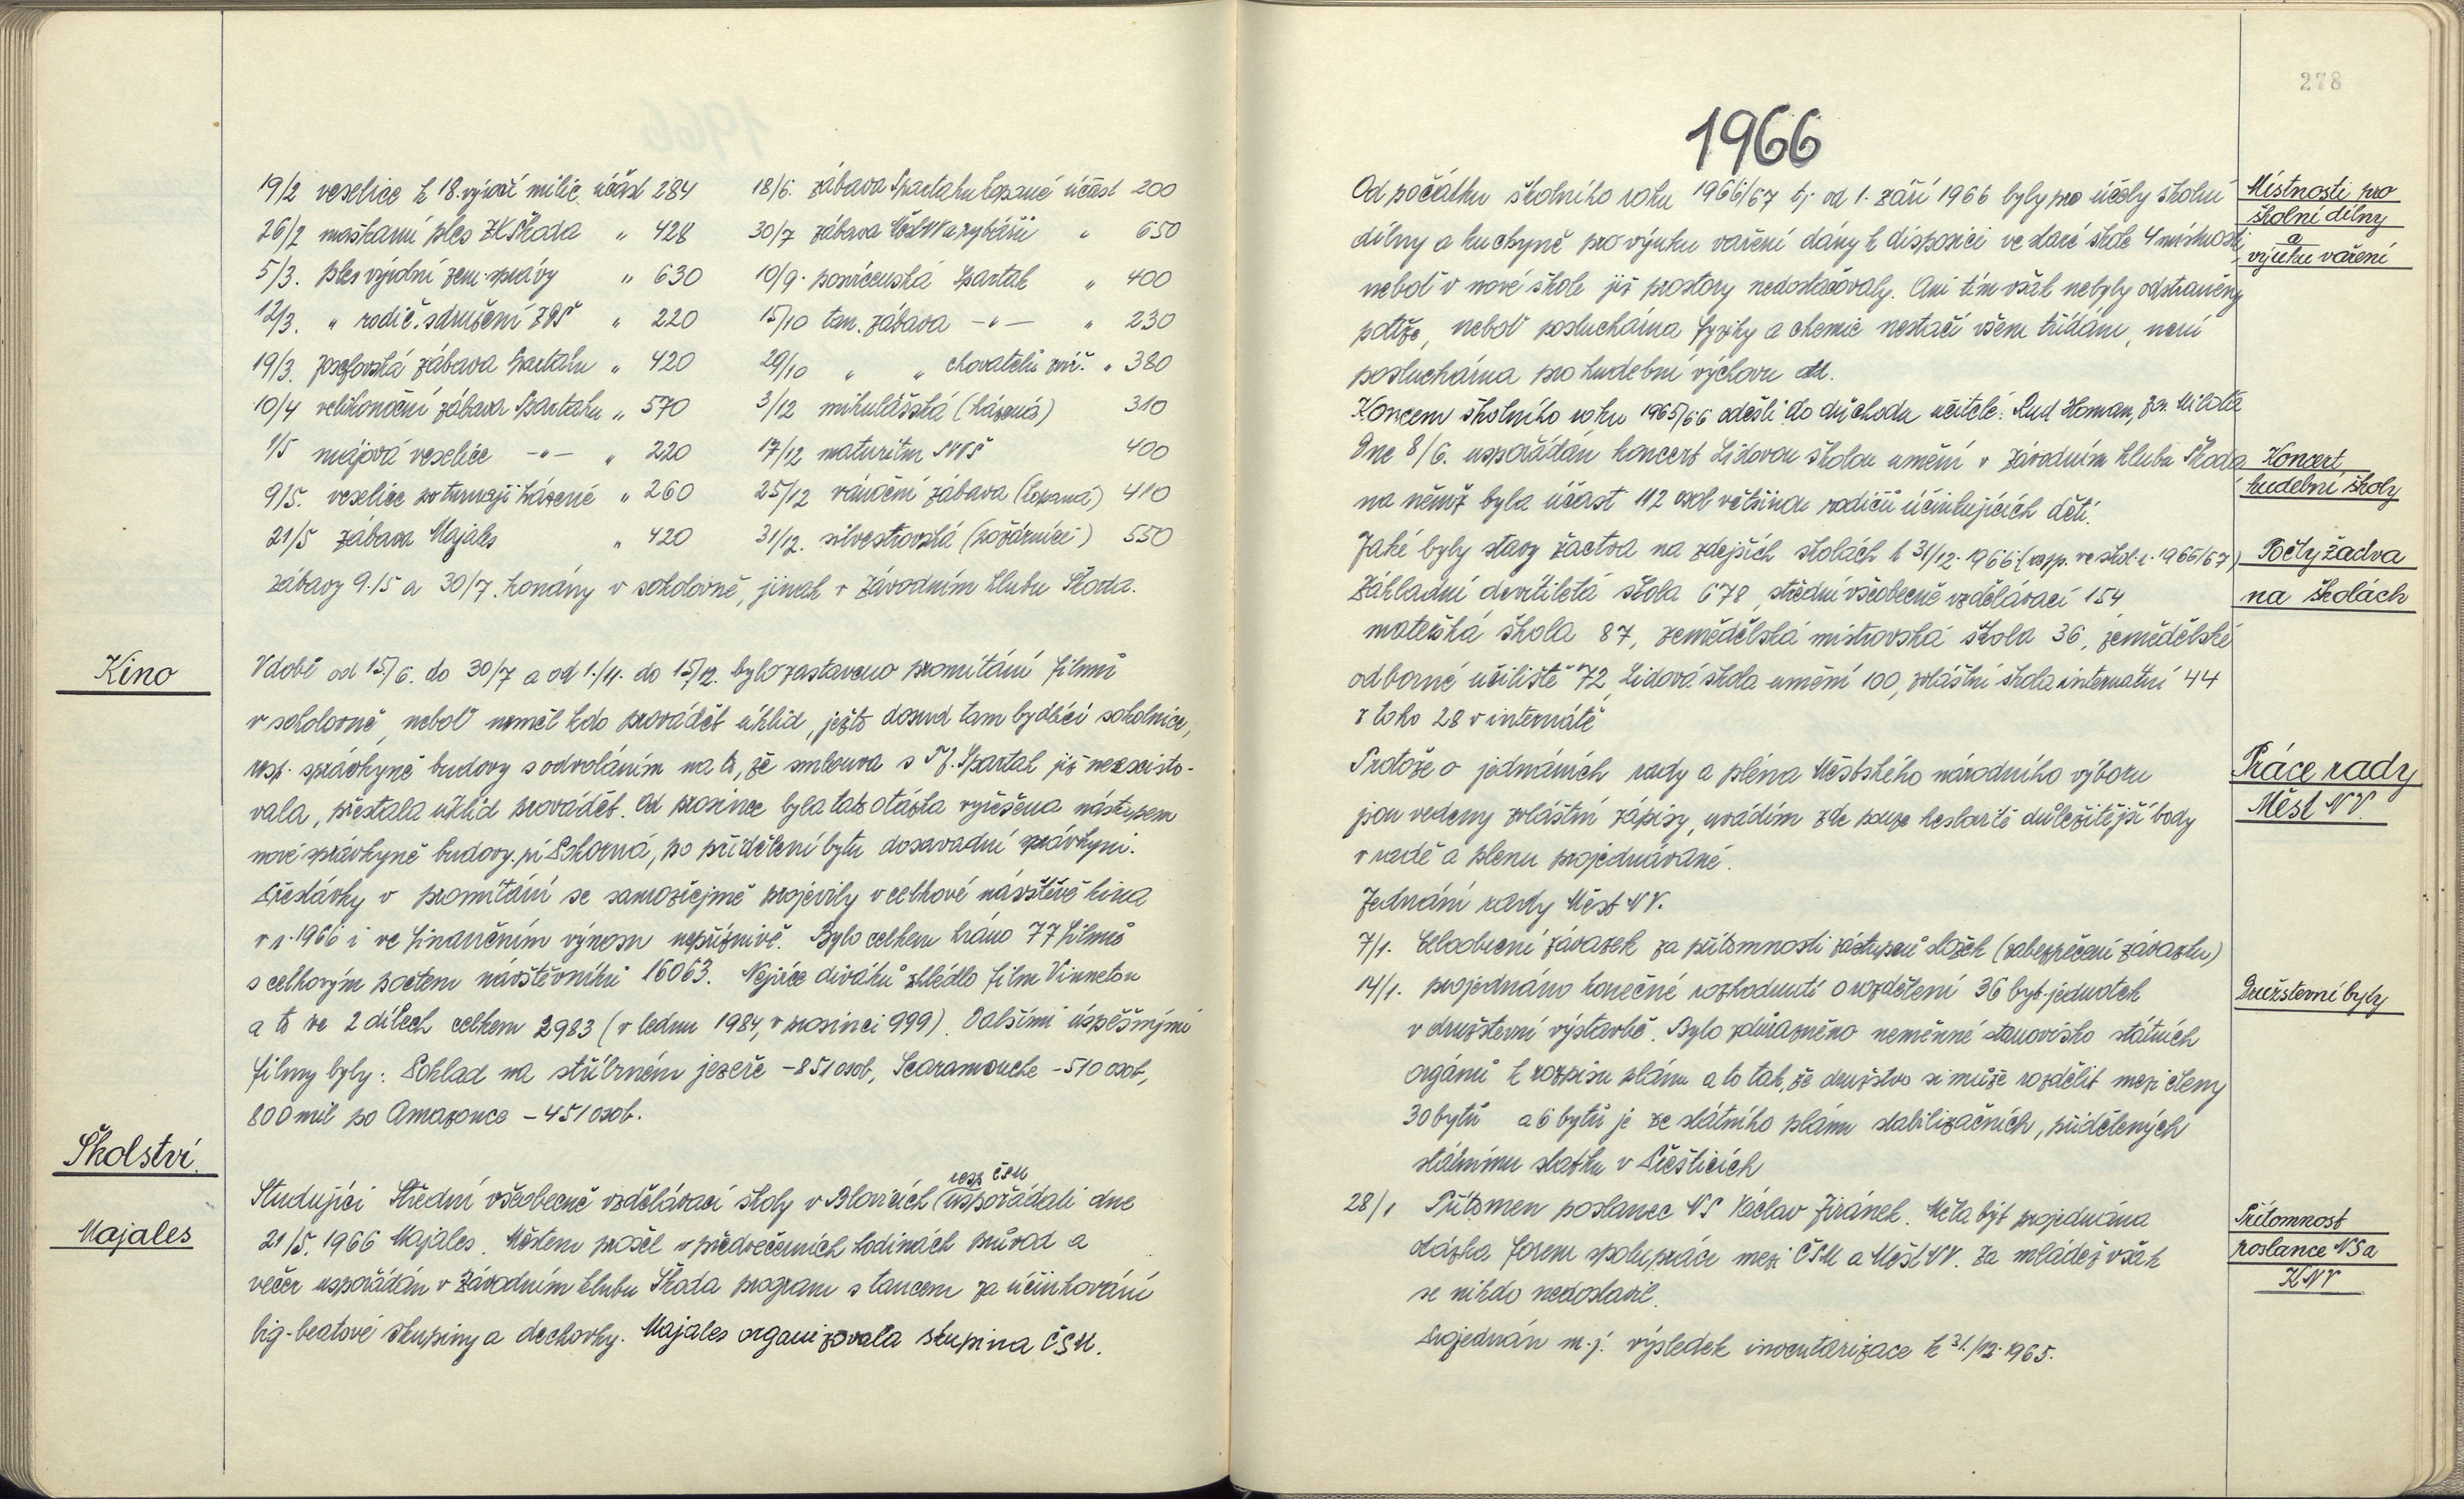 19/2 veselice k 18. výročí milic. účast 284
26/2 maškarní ples ZK Škoda „ 428
5/3. ples výrobní zem. správy „ 630
12/3. „ rodič. sdružení ZDŠ „ 220
19/3. Josefovská zábava Spartaku „ 420
10/4 velikonoční zábava Spartaku „ 570
1/5 májová veselice -„- „ 220
9/5. veselice po turnaji házené „ 260
21/5 zábava Majales „ 420
18/6. zábava Spartaku kopané účast 200
30/7 zábava MěstNV a rybáři „ 650
10/9. posvícenská Spartak „ 400
15/10 tan. zábava -„- „ 230
29/10 „ „ chovatelů zvíř. „ 380
3/12 mikulášská (házená) 310
17/12 maturitní SVVŠ 400
25/12 vánoční zábava (kopaná) 410
31/12. silvestrovská (požárníci) 550
Zábavy 9./5 a 30/7. konány v sokolovně, jinak v Závodním klubu Škoda.
Kino
V době od 15/6. do 30/7 a od 1./11. do 15/12. bylo zastaveno promítání filmů
v sokolovně, neboť neměl kdo provádět úklid, ježto dosud tam bydlící sokolnice,
resp. správkyně budovy s odvoláním na to, že smlouva s TJ. Spartak již neexisto-
vala, přestala úklid provádět. Od prosince byla tato otázka vyřešena nástupem
nové správkyně budovy, pí Pokorná, po přidělení bytu dosavadní správkyni.
Přestávky v promítání se samozřejmě projevily v celkové návštěvě kina
v r. 1966 i ve finančním výnosu nepříznivě. Bylo celkem hráno 77 filmů
s celkovým počtem návštěvníků 16063. Nejvíce diváků zhlédlo film Vinnetou
a to ve 2 dílech celkem 2983 (v lednu 1984, v prosinci 999). Dalšími úspěšnými
filmy byly: Poklad na stříbrném jezeře - 851 osob, Scaramouche - 510 osob,
800 mil po Amazonce - 451 osob.
Školství.
Majales
resp ČSM
Studující Střední všeobecně vzdělávací školy v Blovicích (uspořádali dne
21/5. 1966 Majáles. Městem prošel v předvečerních hodinách průvod a
večer uspořádán v Závodním klubu Škoda program s tancem za účinkování
big-beatové skupiny a dechovky. Majales organizovala skupina ČSM.
278
1966
Od počátku školního roku 1966/67 tj. od 1. září 1966 byly pro účely školní
dílny a kuchyně pro výuku vaření dány k disposici ve staré škole 4 místnosti,
neboť v nové škole již prostory nedostačovaly. Ani tím však nebyly odstraněny
potíže, neboť posluchárna fyziky a chemie nestačí všem třídám, není
posluchárna pro hudební výchovu atd.
Místnosti pro
školní dílny
a
výuku vaření
Koncem školního roku 1965/66 odešli do důchodu učitelé: Rud Homan, Milota
Dne 8/6. uspořádán koncert Lidovou školou umění v Závodním klubu Škoda
na němž byla účast 112 osob většinou rodičů účinkujících dětí.
Koncert
hudební školy
Jaké byly stavy žactva na zdejších školách k 31/12. 1966 (resp. ve škol. r. 1966/67)
Základní devítiletá škola 678, střední všeobecně vzdělávací 154
mateřská škola 87, zemědělská mistrovská škola 36, zemědělské
odborné učiliště 72, Lidová škola umění 100, zvláštní škola internátní 44
z toho 28 v internátě
Počty žactva
na školách
Protože o jednáních rady a pléna Městského národního výboru
jsou vedeny zvláštní zápisy, uvádím zde pouze heslovitě důležitější body
v radě a plenu projednávané.
Práce rady
Měst NV.
Jednání rady Měst NV.
7/1. Celoobecní závazek za přítomnosti zástupců složek (zabezpečení závazku)
14/1. projednáno konečné rozhodnutí o rozdělení 36 byt. jednotek
v družstevní výstavbě. Bylo zdůrazněno neměnné stanovisko státních
orgánů k rozpisu plánu a to tak, že družstvo si může rozdělit mezi členy
30 bytů a 6 bytů je ze státního plánu stabilizačních, přidělených
státnímu statku v Přešticích
Družstevní byty
28/1 Přítomen poslanec NS Václav Jiránek. Měla být projednána
otázka forem spolupráce mezi ČSM a Měst NV. Za mládež však
se nikdo nedostavil.
Projednán m.j. výsledek inventarizace k 31./12. 1965.
Přítomnost
poslance NS a
KNV